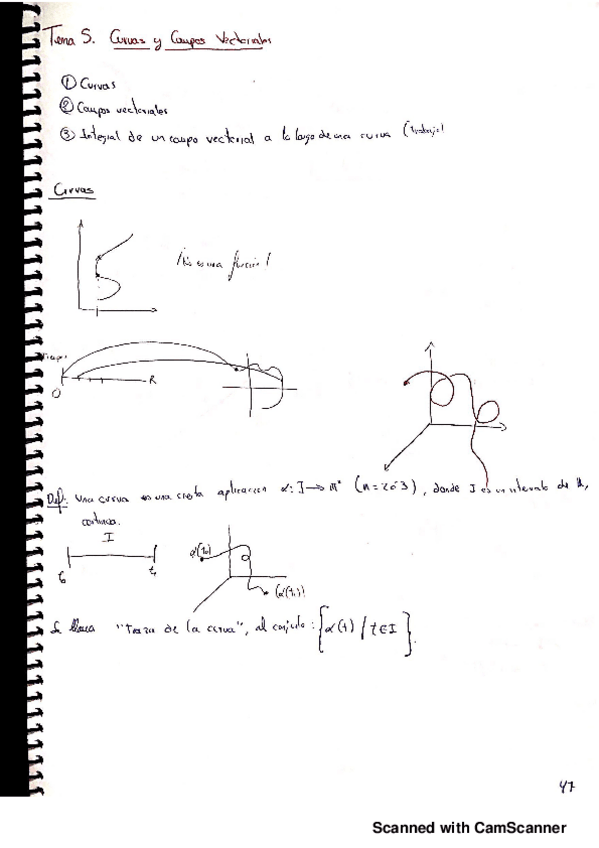 Tema 5. Curvas y Campos Vectoriales
① Curvas
② Campos vectoriales
③ Integral de un campo vectorial a lo largo de una curva (trabajo)
Curvas
¡No es una función!
Tiempo
0
R
Def: Una curva es una cierta aplicación α: I → ℝⁿ (n=2 ó 3), donde I es un intervalo de ℝ,
continua.
I
t₀
t₁
α(t₀)
α(t₁)
Se llama "traza de la curva", al conjunto: {α(t) / t∈I}.
47
Scanned with CamScanner